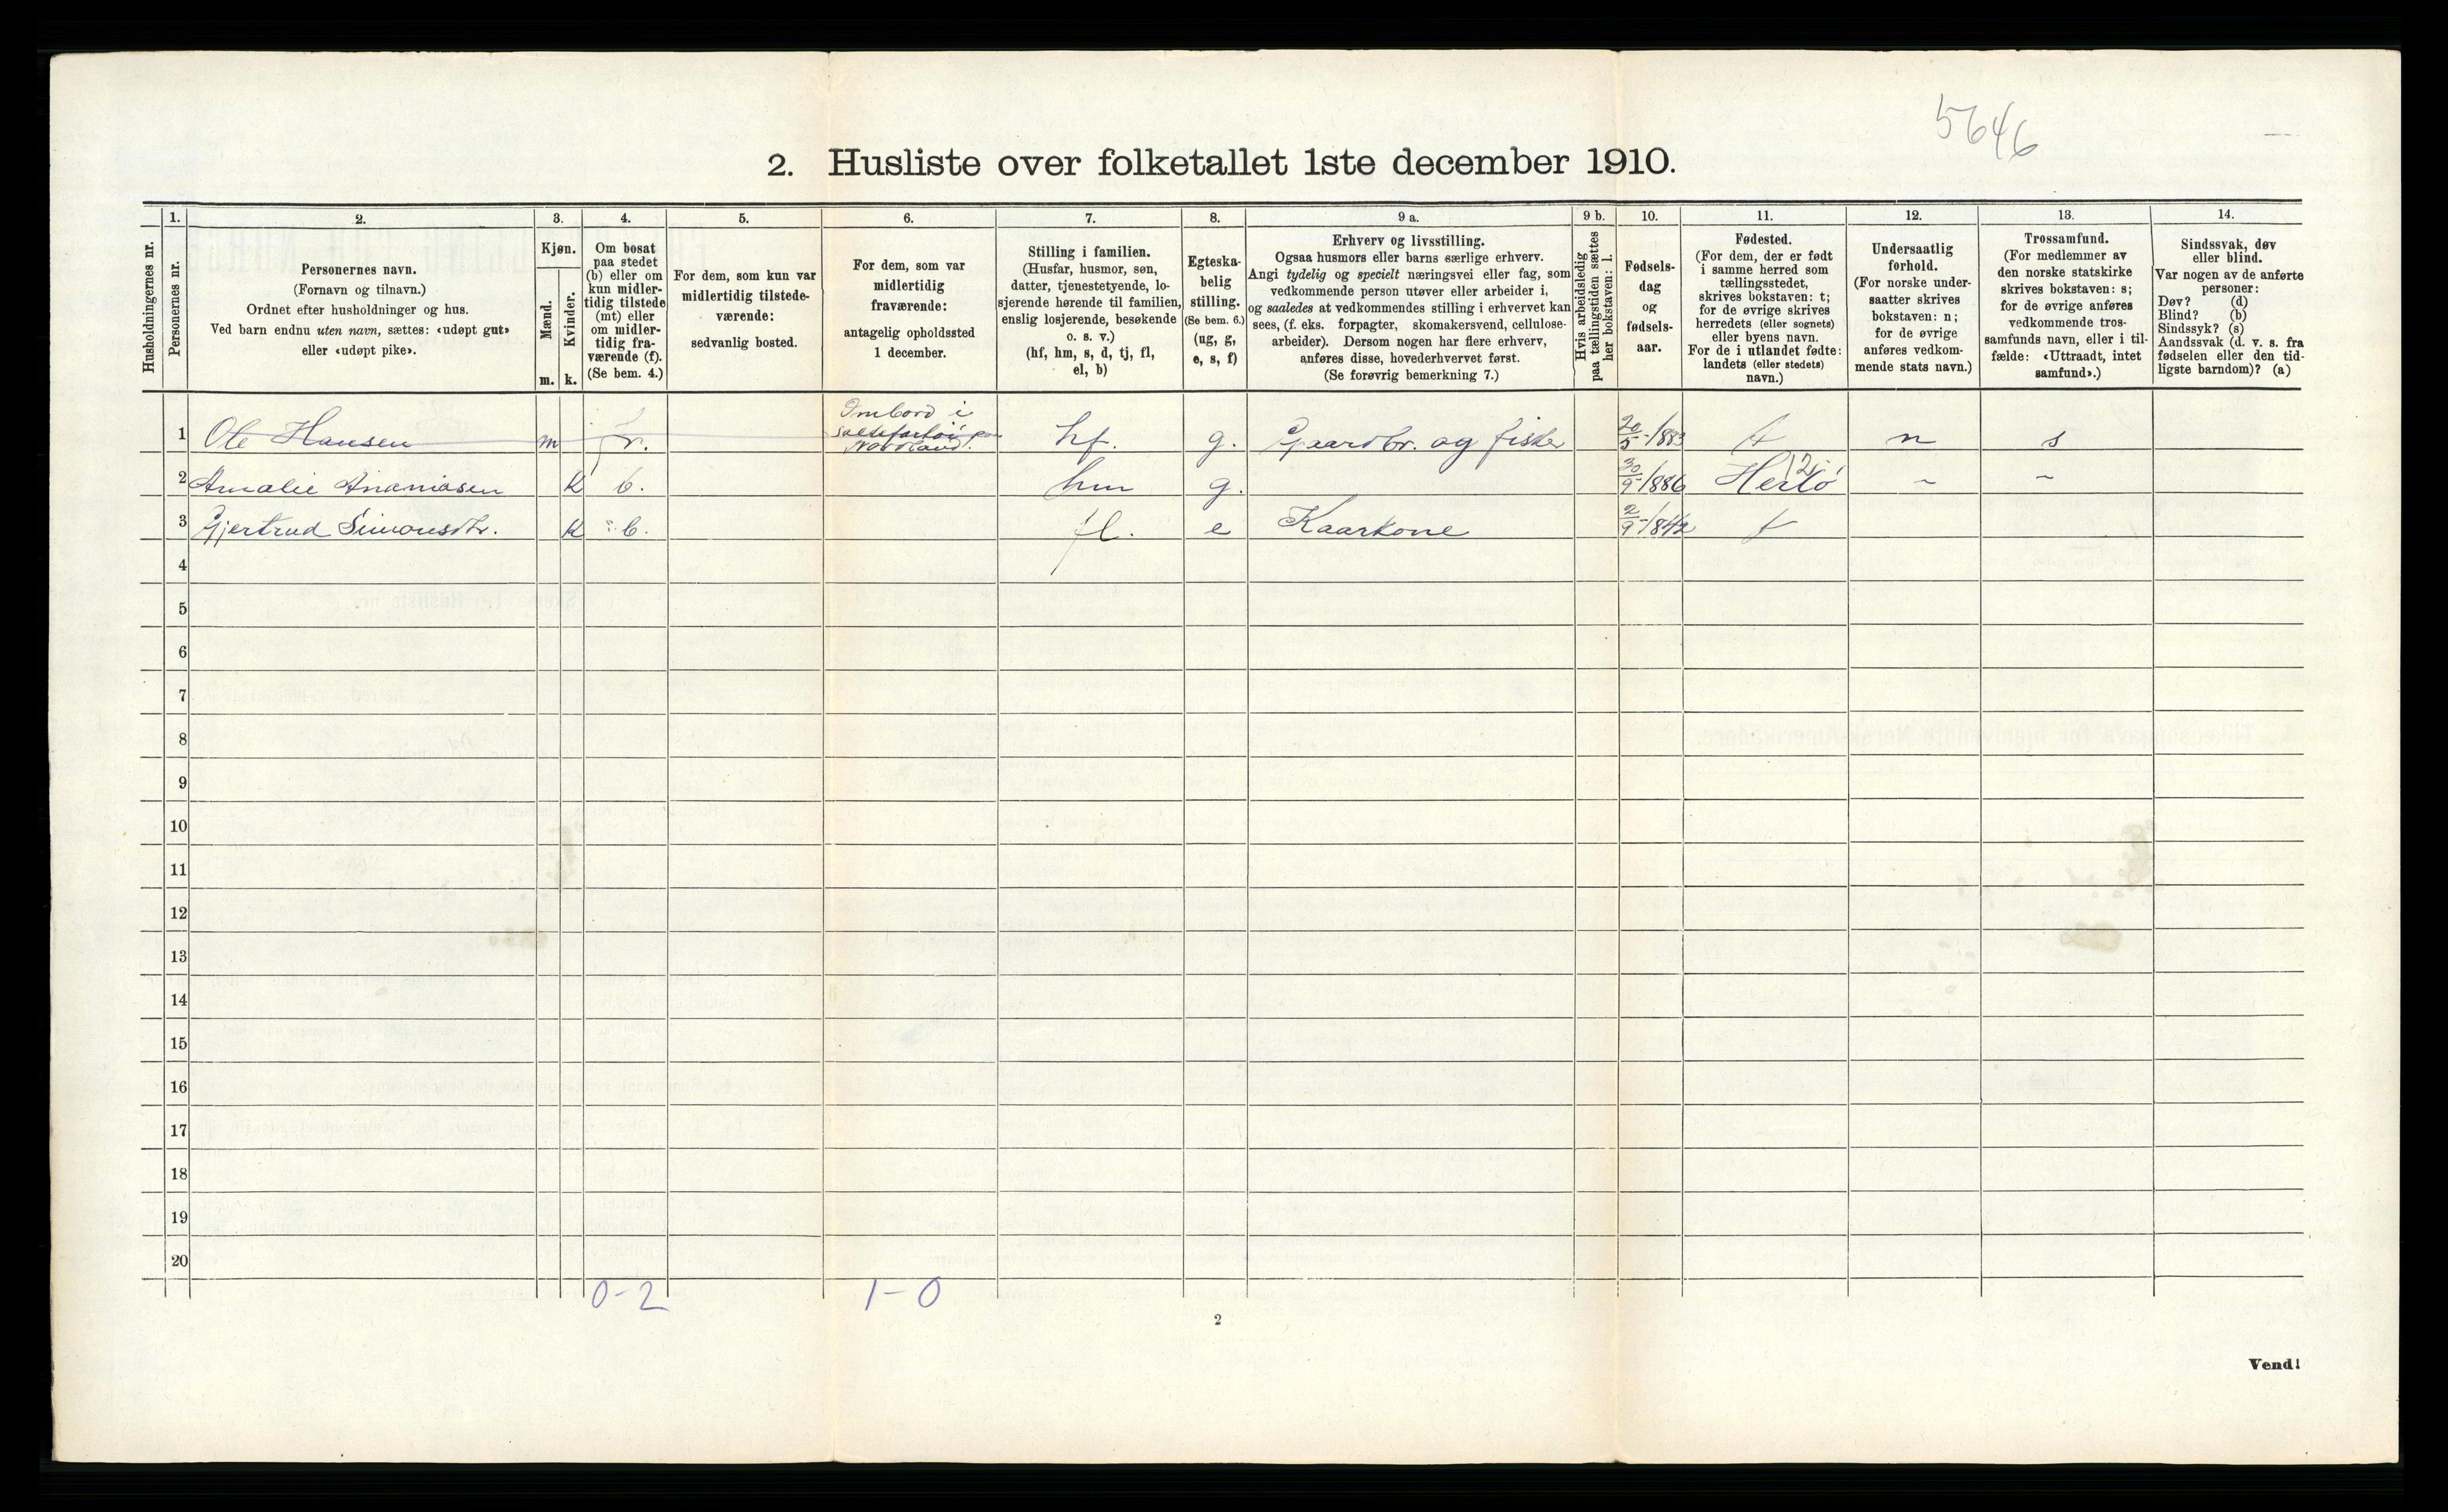 5646
2. Husliste over folketallet 1ste december 1910.
Husholdningernes nr.
1.
Personernes nr.
2.
Personernes navn.
(Fornavn og tilnavn.)
Ordnet efter husholdninger og hus.
Ved barn endnu uten navn, sættes: «udøpt gut»
eller «udøpt pike».
3.
Kjøn.
Mænd.
Kvinder.
m. k.
4.
Om bosat
paa stedet
(b) eller om
kun midler-
tidig tilstede
(mt) eller
om midler-
tidig fra-
værende (f).
(Se bem. 4.)
5.
For dem, som kun var
midlertidig tilstede-
værende:
sedvanlig bosted.
6.
For dem, som var
midlertidig
fraværende:
antagelig opholdssted
1 december.
7.
Stilling i familien.
(Husfar, husmor, søn,
datter, tjenestetyende, lo-
sjerende hørende til familien,
enslig losjerende, besøkende
o. s. v.)
(hf, hm, s, d, tj, fl,
el, b)
8.
Egteska-
belig
stilling.
(Se bem. 6.)
(ug, g,
e, s, f)
9 a.
Erhverv og livsstilling.
Ogsaa husmors eller barns særlige erhverv.
Angi tydelig og specielt næringsvei eller fag, som
vedkommende person utøver eller arbeider i,
og saaledes at vedkommendes stilling i erhvervet kan
sees, (f. eks. forpagter, skomakersvend, cellulose-
arbeider). Dersom nogen har flere erhverv,
anføres disse, hovederhvervet først.
(Se forøvrig bemerkning 7.)
9 b.
Hvis arbeidsledig
paa tællingstiden sættes
her bokstaven: l.
10.
Fødsels-
dag
og
fødsels-
aar.
11.
Fødested.
(For dem, der er født
i samme herred som
tællingsstedet,
skrives bokstaven: t;
for de øvrige skrives
herredets (eller sognets)
eller byens navn.
For de i utlandet fødte:
landets (eller stedets)
navn.)
12.
Undersaatlig
forhold.
(For norske under-
saatter skrives
bokstaven: n;
for de øvrige
anføres vedkom-
mende stats navn.)
13.
Trossamfund.
(For medlemmer av
den norske statskirke
skrives bokstaven: s;
for de øvrige anføres
vedkommende tros-
samfunds navn, eller i til-
fælde: «Uttraadt, intet
samfund».)
14.
Sindssvak, døv
eller blind.
Var nogen av de anførte
personer:
Døv? (d)
Blind? (b)
Sindssyk? (s)
Aandssvak (d. v. s. fra
fødselen eller den tid-
ligste barndom)? (a)
Ombord i
1 Ole Hansen m hf. g. Gaardbr. og fisker 20/5-1883 t n s
2 Amalie Ananiasen k b. hm g. 30/9-1886 Herlö ~ ~
12
3 Gjertrud Simonsdtr. k b. fl. e Kaarkone 2/9-1842 t
4
5
6
7
8
9
10
11
12
13
14
15
16
17
18
19
20
0-2 1-0
2
Vend!